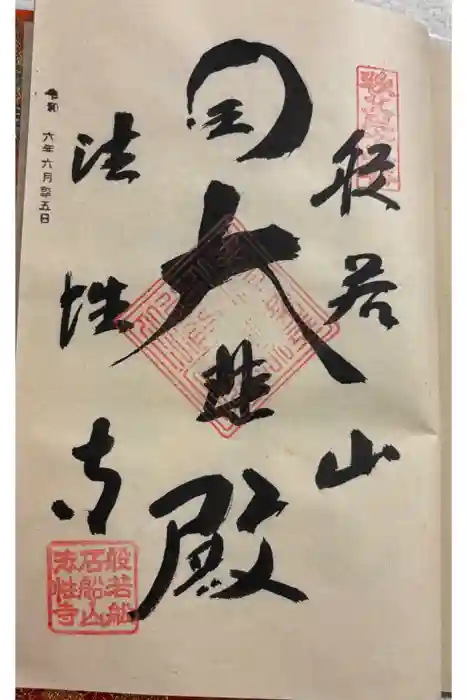 般若山
国大悲殿
法性寺
令和
六年六月廿五日
般若舩
石船山
法性寺